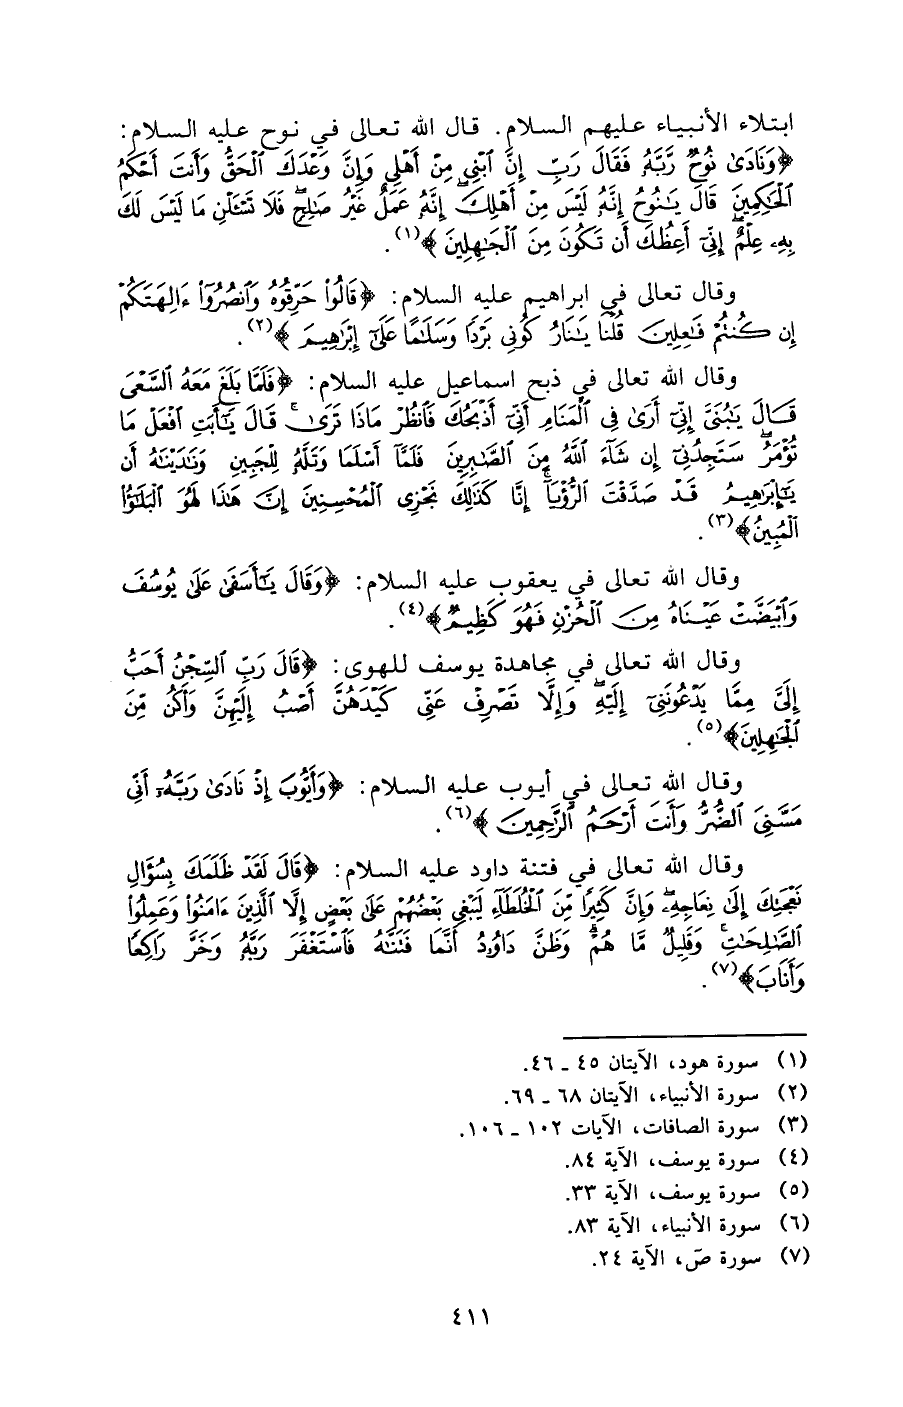 ابتلاء الأنبياء عليهم السلام. قال الله تعالى في نوح عليه السلام:
﴿وَنَادَىٰ نُوحٌ رَّبَّهُ فَقَالَ رَبِّ إِنَّ ٱبْنِي مِنْ أَهْلِي وَإِنَّ وَعْدَكَ ٱلْحَقُّ وَأَنتَ أَحْكَمُ
ٱلْحَٰكِمِينَ قَالَ يَٰنُوحُ إِنَّهُ لَيْسَ مِنْ أَهْلِكَ ۖ إِنَّهُ عَمَلٌ غَيْرُ صَٰلِحٍ ۖ فَلَا تَسْـَٔلْنِ مَا لَيْسَ لَكَ
بِهِۦ عِلْمٌ ۖ إِنِّىٓ أَعِظُكَ أَن تَكُونَ مِنَ ٱلْجَٰهِلِينَ ﴾(١).
وقال تعالى في ابراهيم عليه السلام: ﴿قَالُوا۟ حَرِّقُوهُ وَٱنصُرُوٓا۟ ءَالِهَتَكُمْ
إِن كُنتُمْ فَٰعِلِينَ قُلْنَا يَٰنَارُ كُونِي بَرْدًا وَسَلَٰمًا عَلَىٰٓ إِبْرَٰهِيمَ ﴾(٢).
وقال الله تعالى في ذبح اسماعيل عليه السلام: ﴿فَلَمَّا بَلَغَ مَعَهُ ٱلسَّعْىَ
قَالَ يَٰبُنَىَّ إِنِّىٓ أَرَىٰ فِى ٱلْمَنَامِ أَنِّىٓ أَذْبَحُكَ فَٱنظُرْ مَاذَا تَرَىٰ ۚ قَالَ يَٰٓأَبَتِ ٱفْعَلْ مَا
تُؤْمَرُ ۖ سَتَجِدُنِىٓ إِن شَآءَ ٱللَّهُ مِنَ ٱلصَّٰبِرِينَ فَلَمَّآ أَسْلَمَا وَتَلَّهُۥ لِلْجَبِينِ وَنَٰدَيْنَٰهُ أَن
يَٰٓإِبْرَٰهِيمُ قَدْ صَدَّقْتَ ٱلرُّءْيَآ ۚ إِنَّا كَذَٰلِكَ نَجْزِى ٱلْمُحْسِنِينَ إِنَّ هَٰذَا لَهُوَ ٱلْبَلَٰٓؤُا۟
ٱلْمُبِينُ﴾(٣).
وقال الله تعالى في يعقوب عليه السلام: ﴿وَقَالَ يَٰٓأَسَفَىٰ عَلَىٰ يُوسُفَ
وَٱبْيَضَّتْ عَيْنَاهُ مِنَ ٱلْحُزْنِ فَهُوَ كَظِيمٌ﴾(٤).
وقال الله تعالى في مجاهدة يوسف للهوى: ﴿قَالَ رَبِّ ٱلسِّجْنُ أَحَبُّ
إِلَىَّ مِمَّا يَدْعُونَنِىٓ إِلَيْهِ ۖ وَإِلَّا تَصْرِفْ عَنِّى كَيْدَهُنَّ أَصْبُ إِلَيْهِنَّ وَأَكُن مِّنَ
ٱلْجَٰهِلِينَ﴾(٥).
وقال الله تعالى في أيوب عليه السلام: ﴿وَأَيُّوبَ إِذْ نَادَىٰ رَبَّهُۥٓ أَنِّى
مَسَّنِىَ ٱلضُّرُّ وَأَنتَ أَرْحَمُ ٱلرَّٰحِمِينَ ﴾(٦).
وقال الله تعالى في فتنة داود عليه السلام: ﴿قَالَ لَقَدْ ظَلَمَكَ بِسُؤَالِ
نَعْجَتِكَ إِلَىٰ نِعَاجِهِۦ ۖ وَإِنَّ كَثِيرًا مِّنَ ٱلْخُلَطَآءِ لَيَبْغِى بَعْضُهُمْ عَلَىٰ بَعْضٍ إِلَّا ٱلَّذِينَ ءَامَنُوا۟ وَعَمِلُوا۟
ٱلصَّٰلِحَٰتِ وَقَلِيلٌ مَّا هُمْ ۗ وَظَنَّ دَاوُۥدُ أَنَّمَا فَتَنَّٰهُ فَٱسْتَغْفَرَ رَبَّهُۥ وَخَرَّ رَاكِعًا
وَأَنَابَ﴾(٧).
(١) سورة هود، الآيتان ٤٥ ـ ٤٦.
(٢) سورة الأنبياء، الآيتان ٦٨ ـ ٦٩.
(٣) سورة الصافات، الآيات ١٠٢ ـ ١٠٦.
(٤) سورة يوسف، الآية ٨٤.
(٥) سورة يوسف، الآية ٣٣.
(٦) سورة الأنبياء، الآية ٨٣.
(٧) سورة صۤ، الآية ٢٤.
٤١١